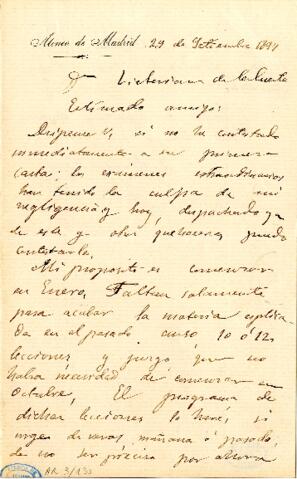 Ateneo de Madrid 29 de Setiembre 1897
Dn Victoriano de la Cuesta
Estimado amigo:
Dispense V. si no he contestado
inmediatamente a su primera
carta: los exámenes extraordinarios
han tenido la culpa de mi
negligencia y hoy, despachado ya
de este y otros quehaceres puedo
contestarle.
Mi proposito es comenzar
en Enero. Faltan solamente
para acabar la materia explica
da en el pasado curso 10 ó 12
lecciones y juzgo que no
habrá necesidad de comenzar en
Octubre. El programa de
dichas lecciones lo haré, si
urgen de veras, mañana ó pasado,
de no ser preciso por ahora
AR 3/133